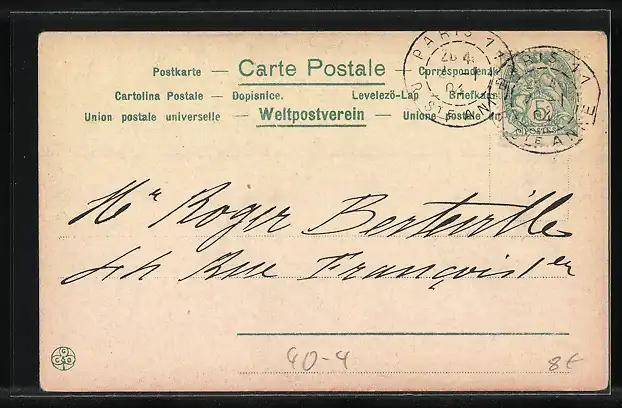 Postkarte — Carte Postale — Correspondenzk
Cartolina Postale — Dopisnice. Levelező-Lap — Briefkaa
Union postale universelle — Weltpostverein — Unione postale
PARIS 17
4
04
R. STE ANNE
PARIS 17
04
STE ANNE
5
POSTES
Mr Roger Berteville
44 Rue François 1er
40-4
8€